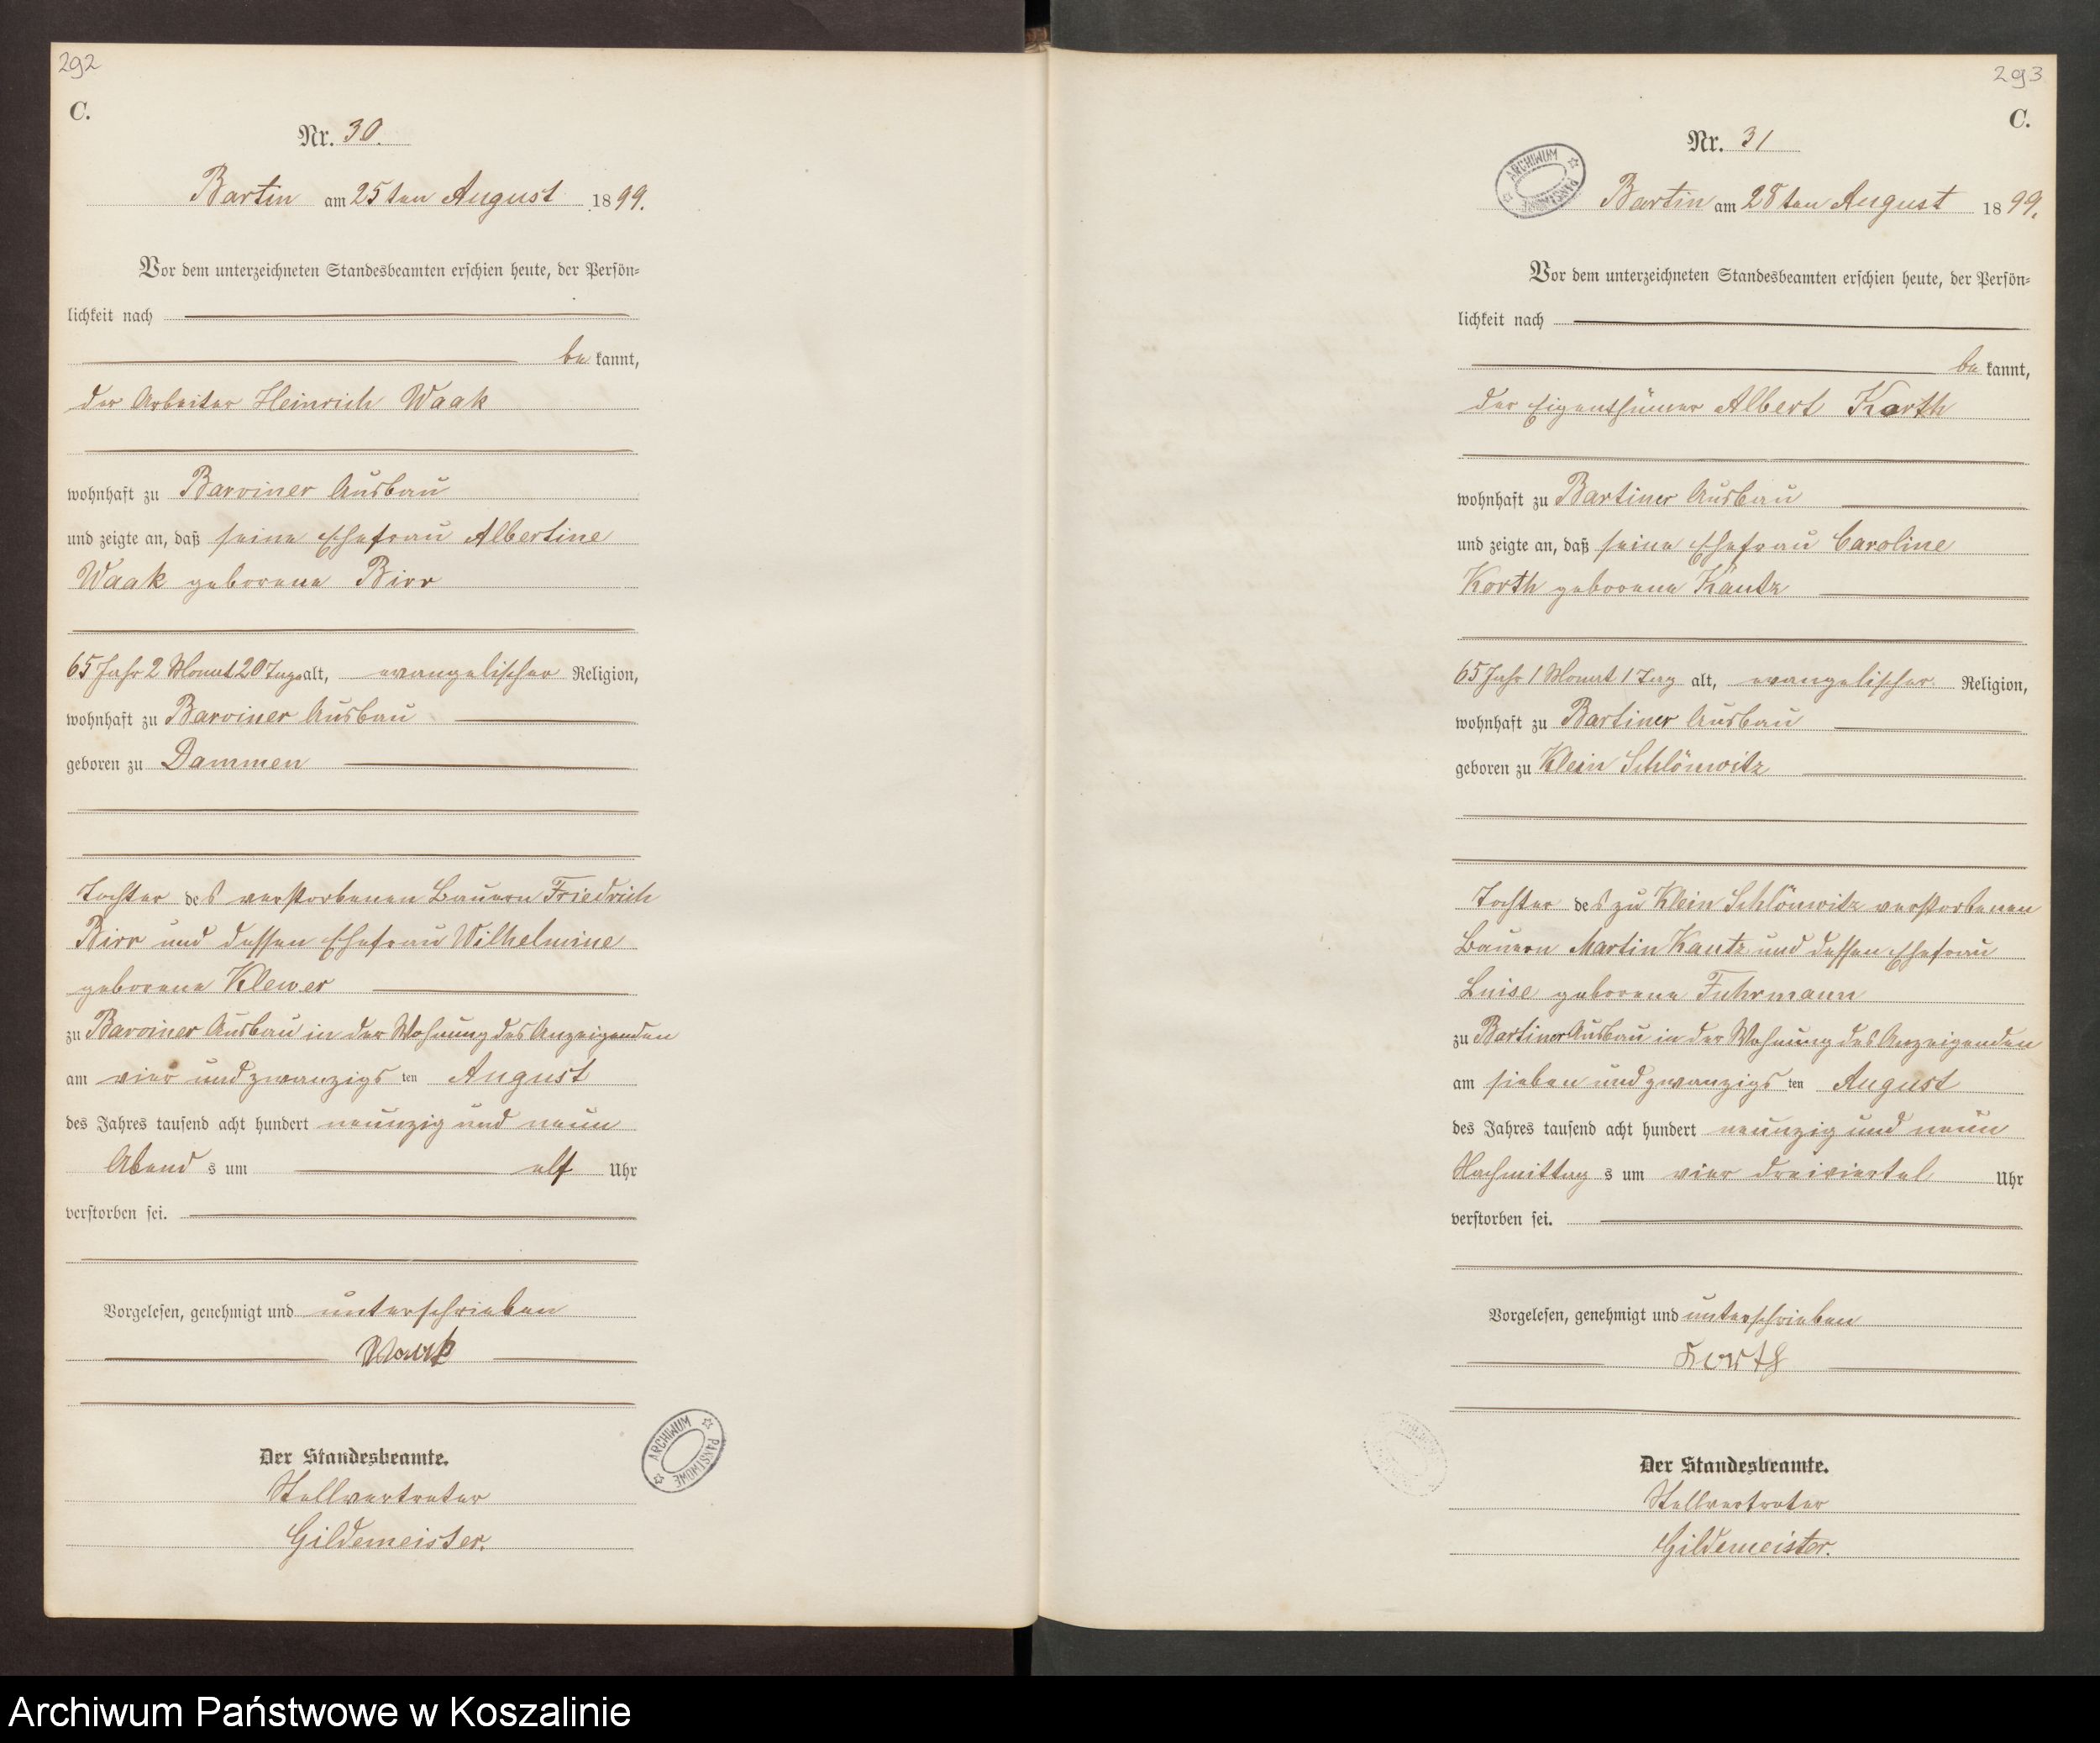 292
C.
Nr. 30.
Bartin am 25ten August 1899.
Vor dem unterzeichneten Standesbeamten erschien heute, der Persön-
lichkeit nach
bekannt,
der Arbeiter Heinrich Waak
wohnhaft zu Barviner Ausbau
und zeigte an, daß seine Ehefrau Albertine
Waak geborene Birr
65 Jahr 2 Monat 20 Tage alt, evangelischer Religion,
wohnhaft zu Barviner Ausbau
geboren zu Dammen
Tochter des verstorbenen Bauern Friedrich
Birr und dessen Ehefrau Wilhelmine
geborene Klewer
zu Barviner Ausbau in der Wohnung des Anzeigenden
am vier und zwanzigsten August
des Jahres tausend acht hundert neunzig und neun
Abends um elf Uhr
verstorben sei.
Vorgelesen, genehmigt und unterschrieben
Waak
Der Standesbeamte.
Stellvertreter
Gildemeister.
ARCHIWUM PAŃSTWOWE
293
C.
Nr. 31
ARCHIWUM PAŃSTWOWE
Bartin am 28ten August 1899.
Vor dem unterzeichneten Standesbeamten erschien heute, der Persön-
lichkeit nach
bekannt,
der Eigenthümer Albert Korth
wohnhaft zu Bartiner Ausbau
und zeigte an, daß seine Ehefrau Caroline
Korth geborene Kautz
65 Jahr 1 Monat 1 Tag alt, evangelischer Religion,
wohnhaft zu Bartiner Ausbau
geboren zu Klein Schlönwitz
Tochter des zu Klein Schlönwitz verstorbenen
Bauern Martin Kautz und dessen Ehefrau
Luise geborene Fuhrmann
zu Bartiner Ausbau in der Wohnung des Anzeigenden
am sieben und zwanzigsten August
des Jahres tausend acht hundert neunzig und neun
Nachmittags um vier dreiviertel Uhr
verstorben sei.
Vorgelesen, genehmigt und unterschrieben
Korth
Der Standesbeamte.
Stellvertreter
Gildemeister.
Archiwum Państwowe w Koszalinie